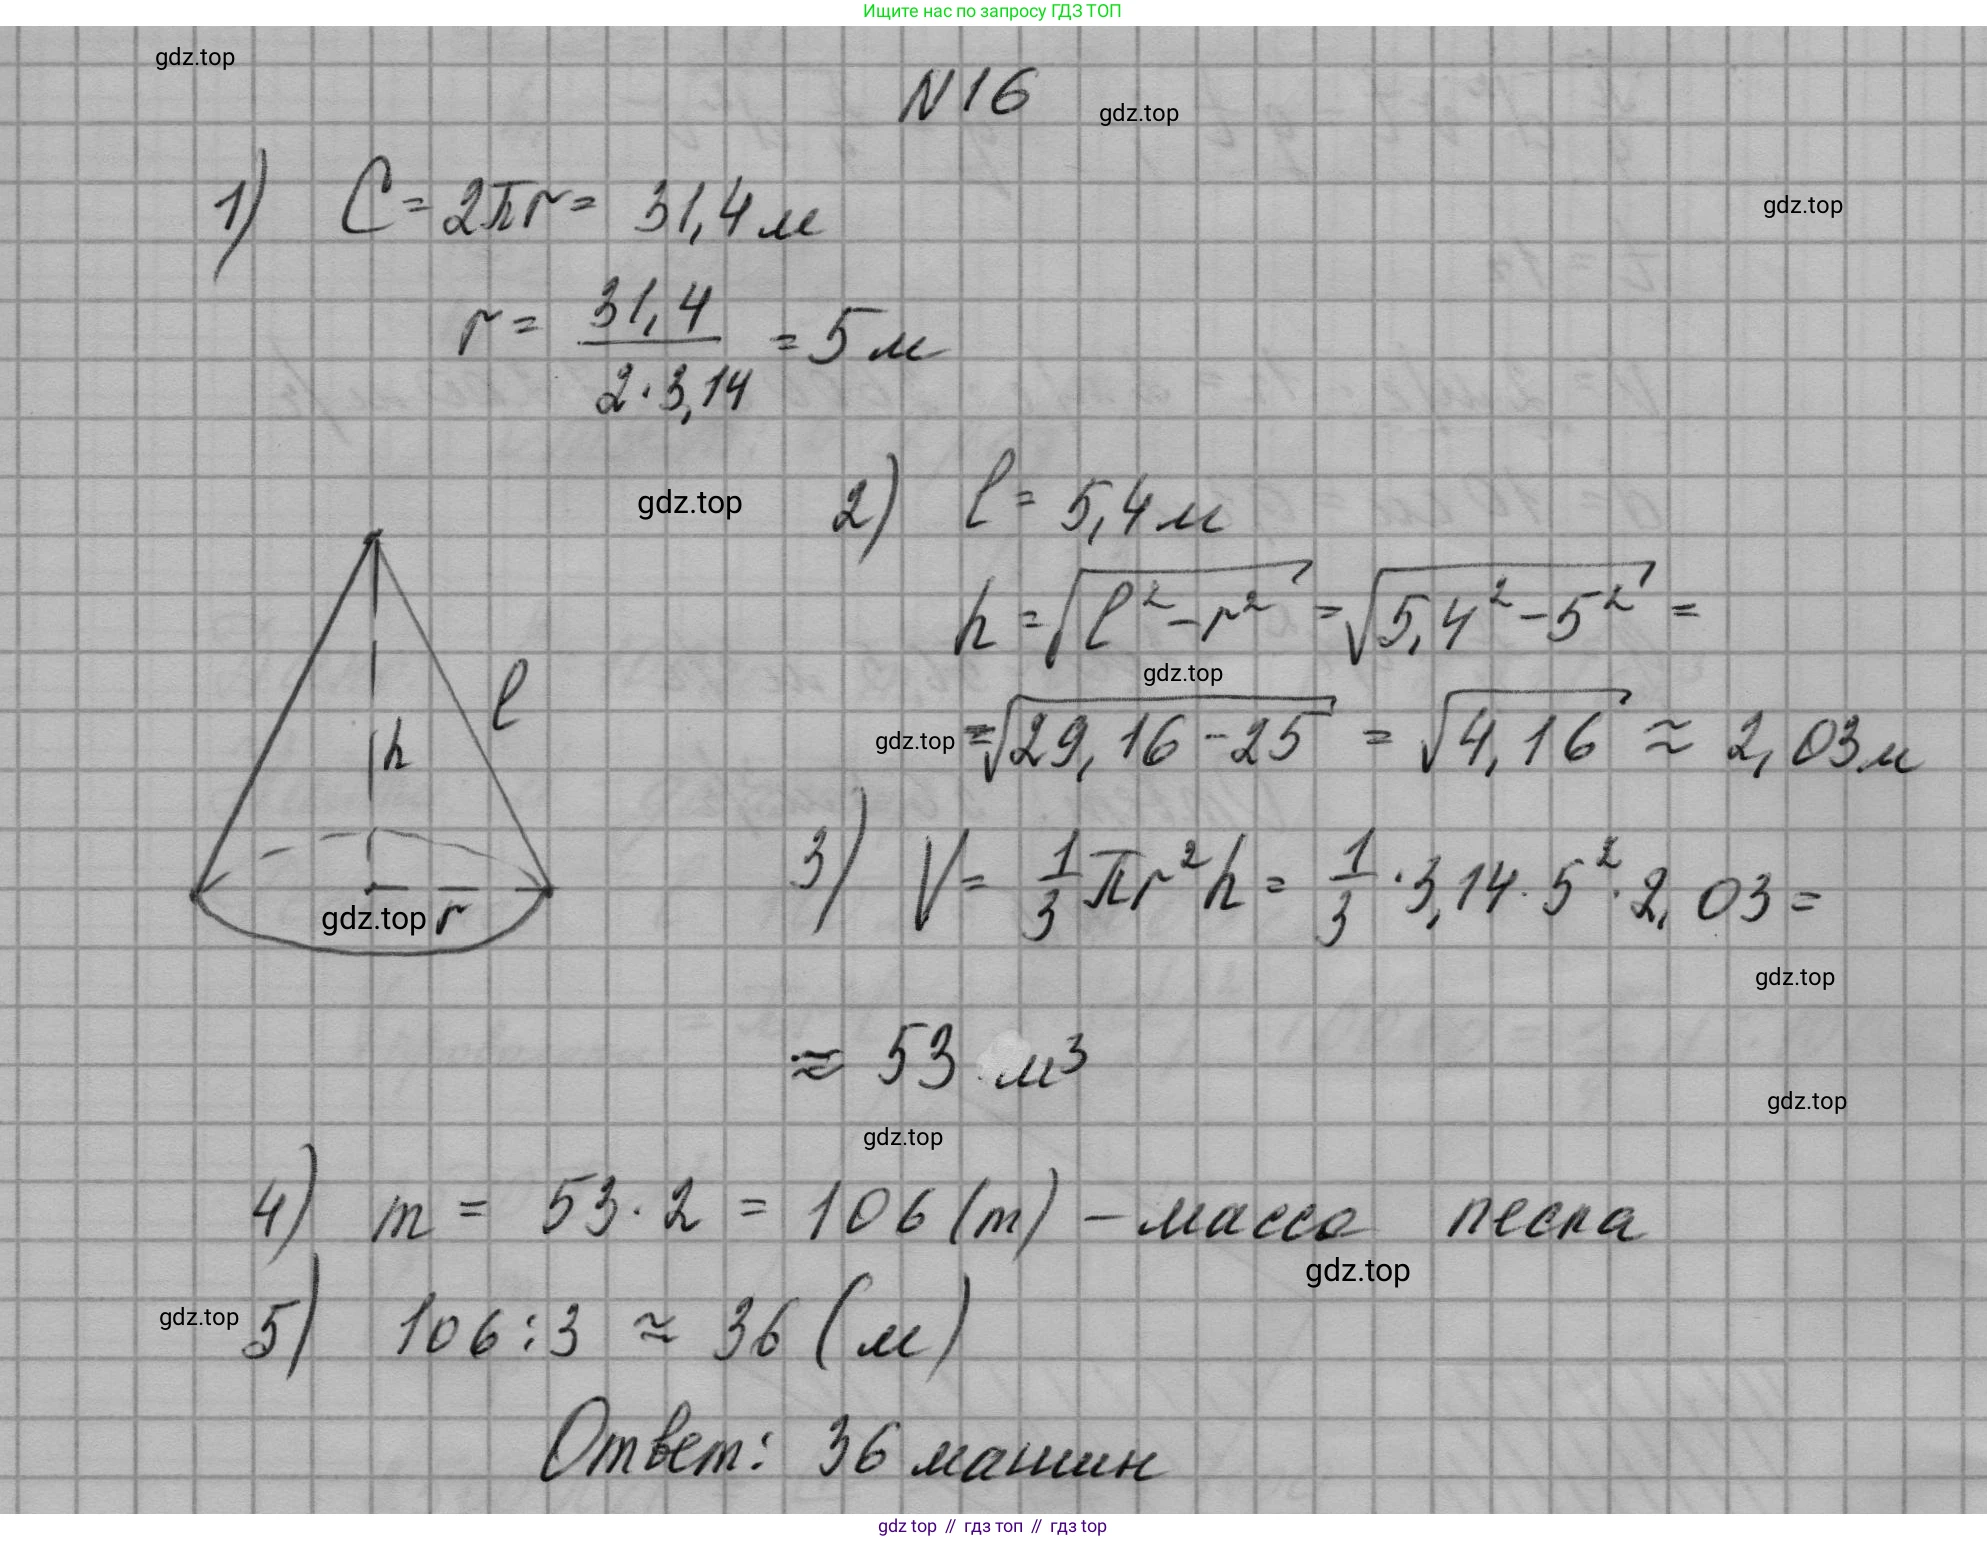 Ищите нас по запросу ГДЗ ТОП
gdz.top
N 16
gdz.top
1) C = 2πr = 31,4 м
gdz.top
r = 31,4 / 2·3,14 = 5 м
gdz.top
2) l = 5,4 м
h = √l²-r² = √5,4²-5² =
gdz.top
gdz.top
=√29,16-25 = √4,16 ≈ 2,03 м
l
h
r
gdz.top
3) V = 1/3 πr²h = 1/3 · 3,14 · 5² · 2,03 =
gdz.top
≈ 53 м³
gdz.top
gdz.top
4) m = 53 · 2 = 106 (т) - масса песка
gdz.top
gdz.top
5) 106 : 3 ≈ 36 (м)
Ответ: 36 машин
gdz top // гдз топ // гдз top